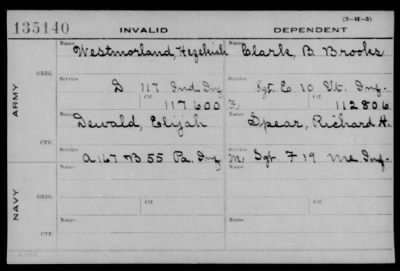 (3-H-5)
135140 INVALID DEPENDENT
Name Westmorland, Hezekiah Name Clarke, B. Brooks
ARMY
ORIG.
Service D 117 Ind. Inf Service Sgt. E 10 Vt. Inf.
Ctf. 117.600 Ctf. 112806
Name Dewald, Elijah Name Spear, Richard H.
CTF.
Service A 167 & B 55 Pa. Inf Service M Sgt F 19 Me Inf.
NAVY
ORIG.
Name Ctf. Name Ctf.
Service Service
Name Name
CTF.